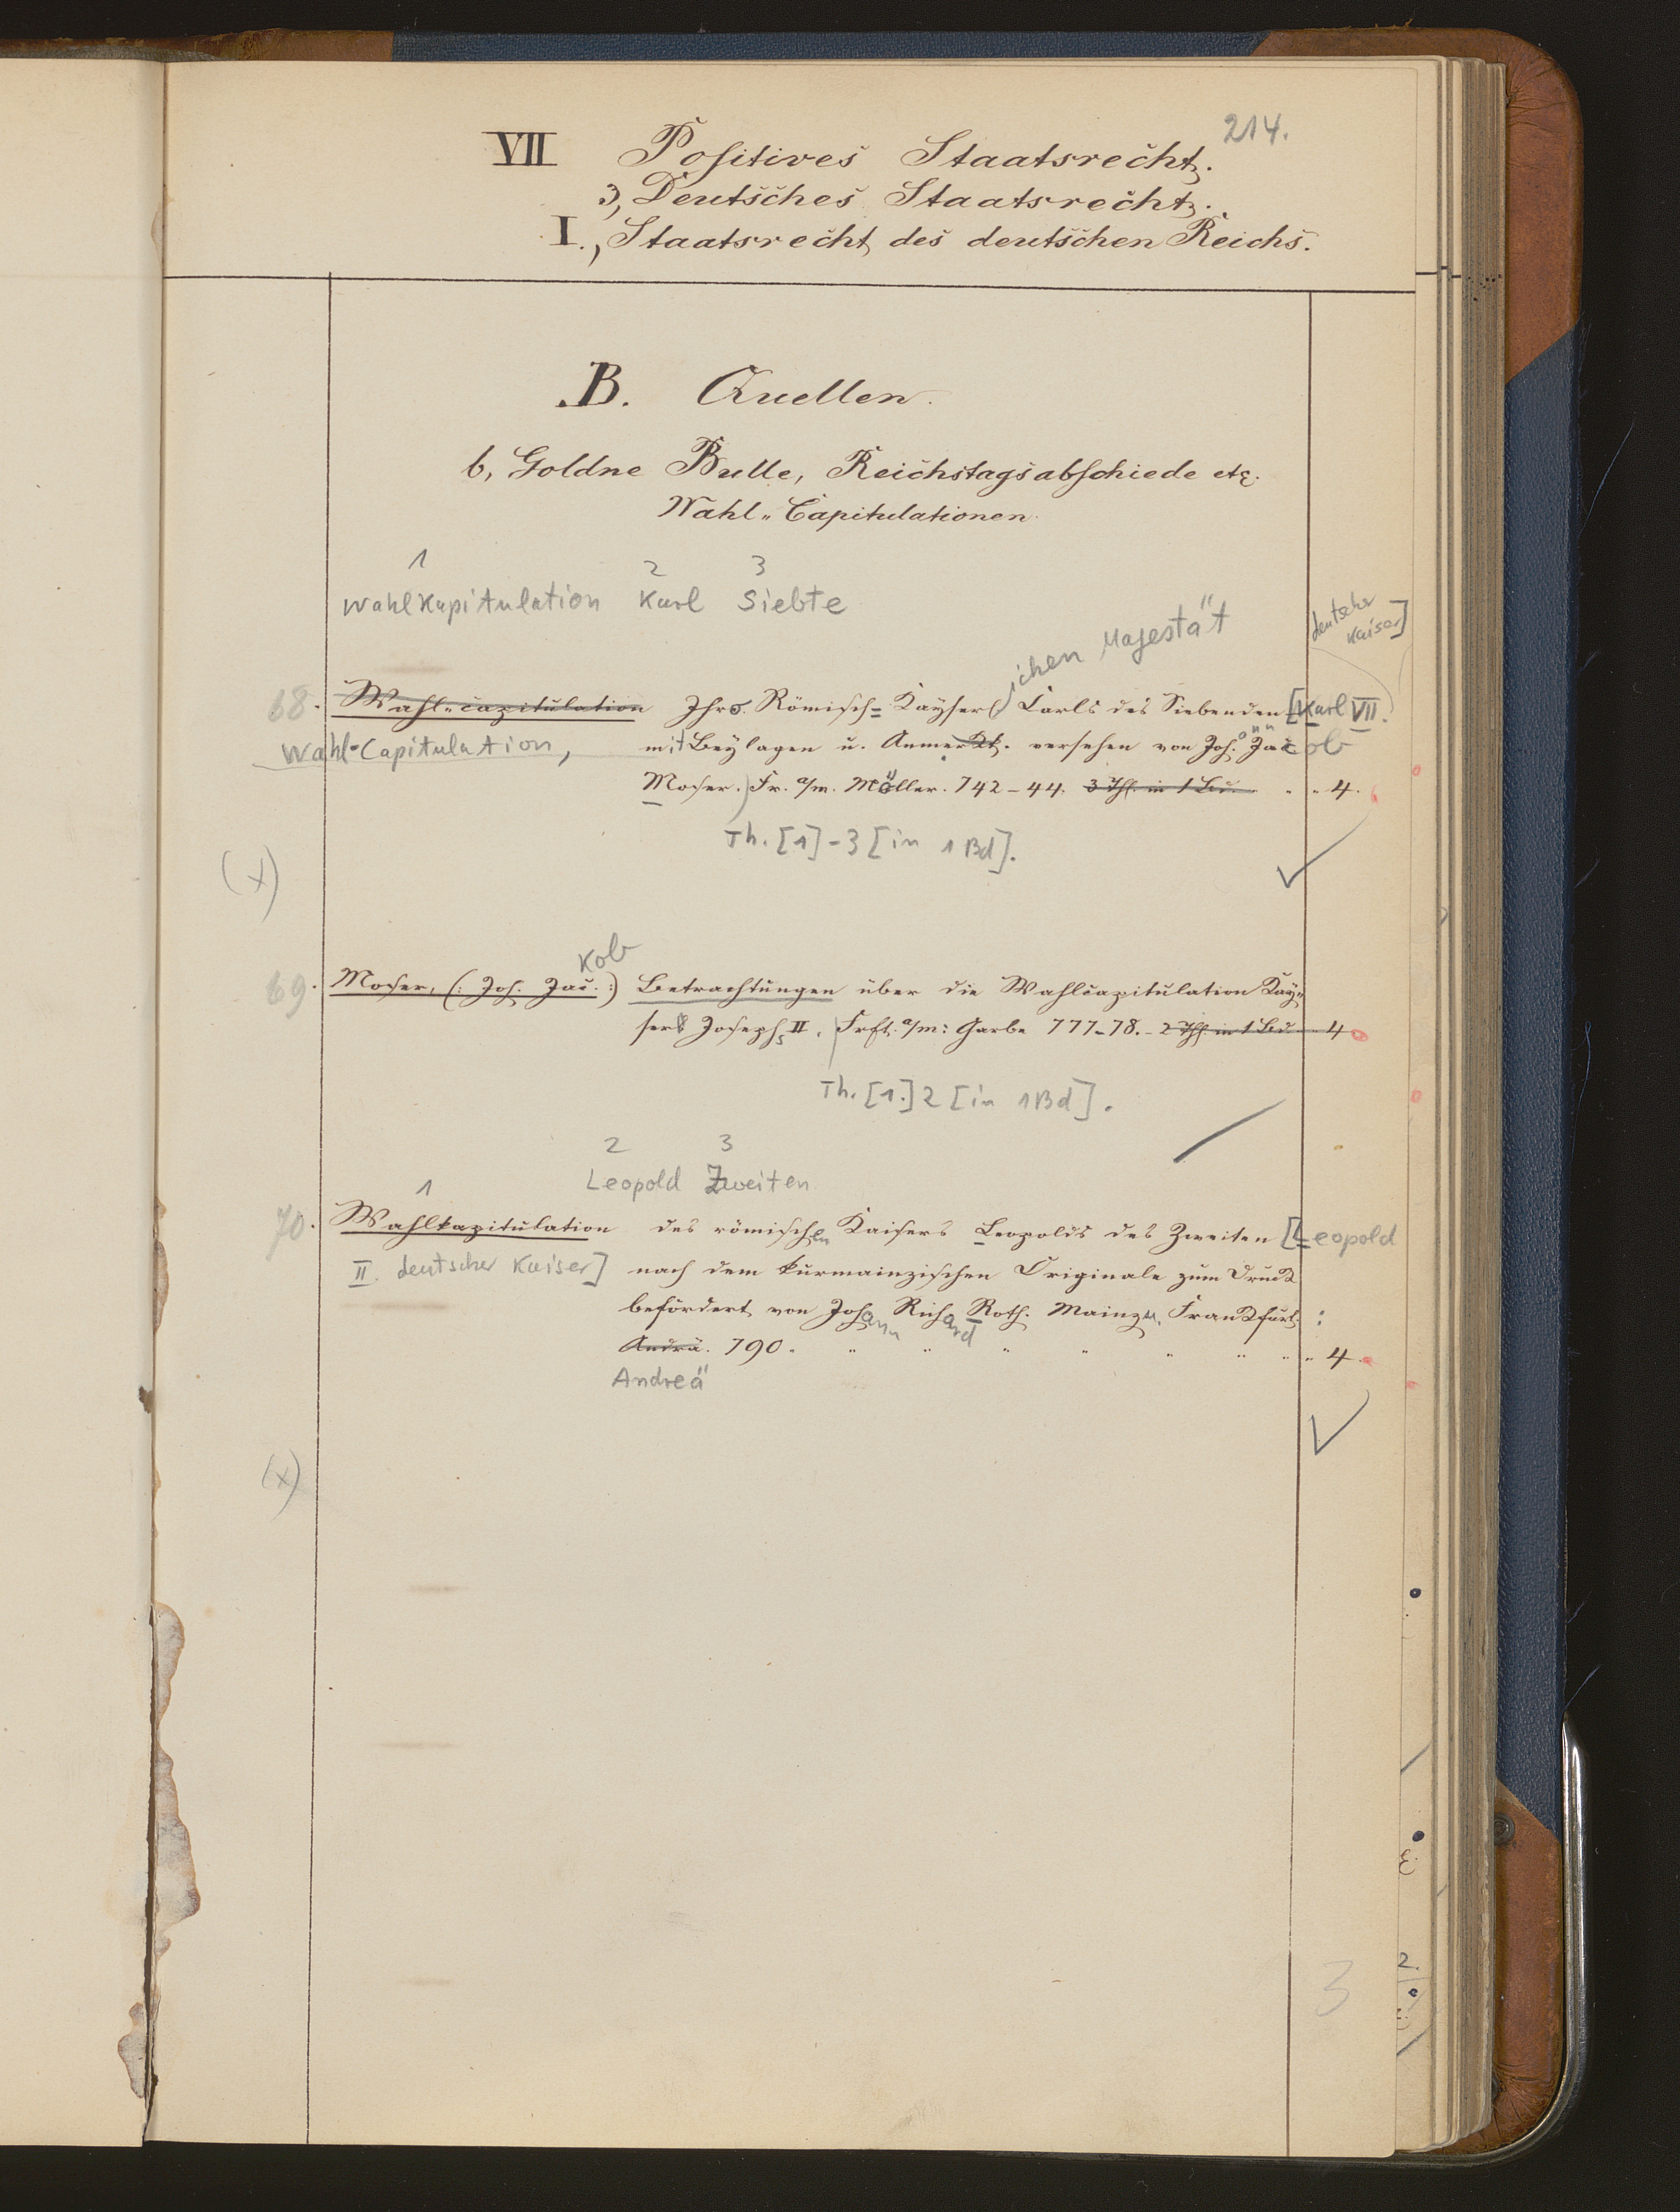 214.
VII Positives Staatsrecht.
3, Deutsches Staatsrecht.
I., Staatsrecht des deutschen Reichs.
B. Quellen.
b, Goldne Bulle, Reichstagsabschiede etc.
Wahl„Capitulationen
1 2 3
Wahlkapitulation Karl Siebte
ichen Majestät
deutscher
Kaiser]
68. Wahl„capitulation Ihro Römisch= Kayserl Carls des Siebenden [Karl VII.
Wahl-Capitulation, mit Beylagen u. Anmerk. versehen von Joh. Jac ob
Moser. Fr. a/m. Möller. 742–44. 3 Thl. in 1 Bd. 4.
Th. [1]-3 [in 1 Bd].
(x)
kob
69. Moser, (: Joh. Jac. :) Betrachtungen über die Wahlcapitulation Kay„
sers Josephs II. Frft. a/m: Garbe 777–78. 2 Thl. in 1 Bd 4
Th. [1.] 2 [in 1 Bd].
2 3
Leopold Zweiten
1
70. Wahlkapitulation des römischen Kaisers Leopolds des Zweiten [Leopold
II. deutscher Kaiser] nach dem kurmainzischen Originale zum Druck
befördert von Johann Richard Roth. Mainz u. Frankfurt:
Andrä. 790. 4.
Andreä
(x)
3